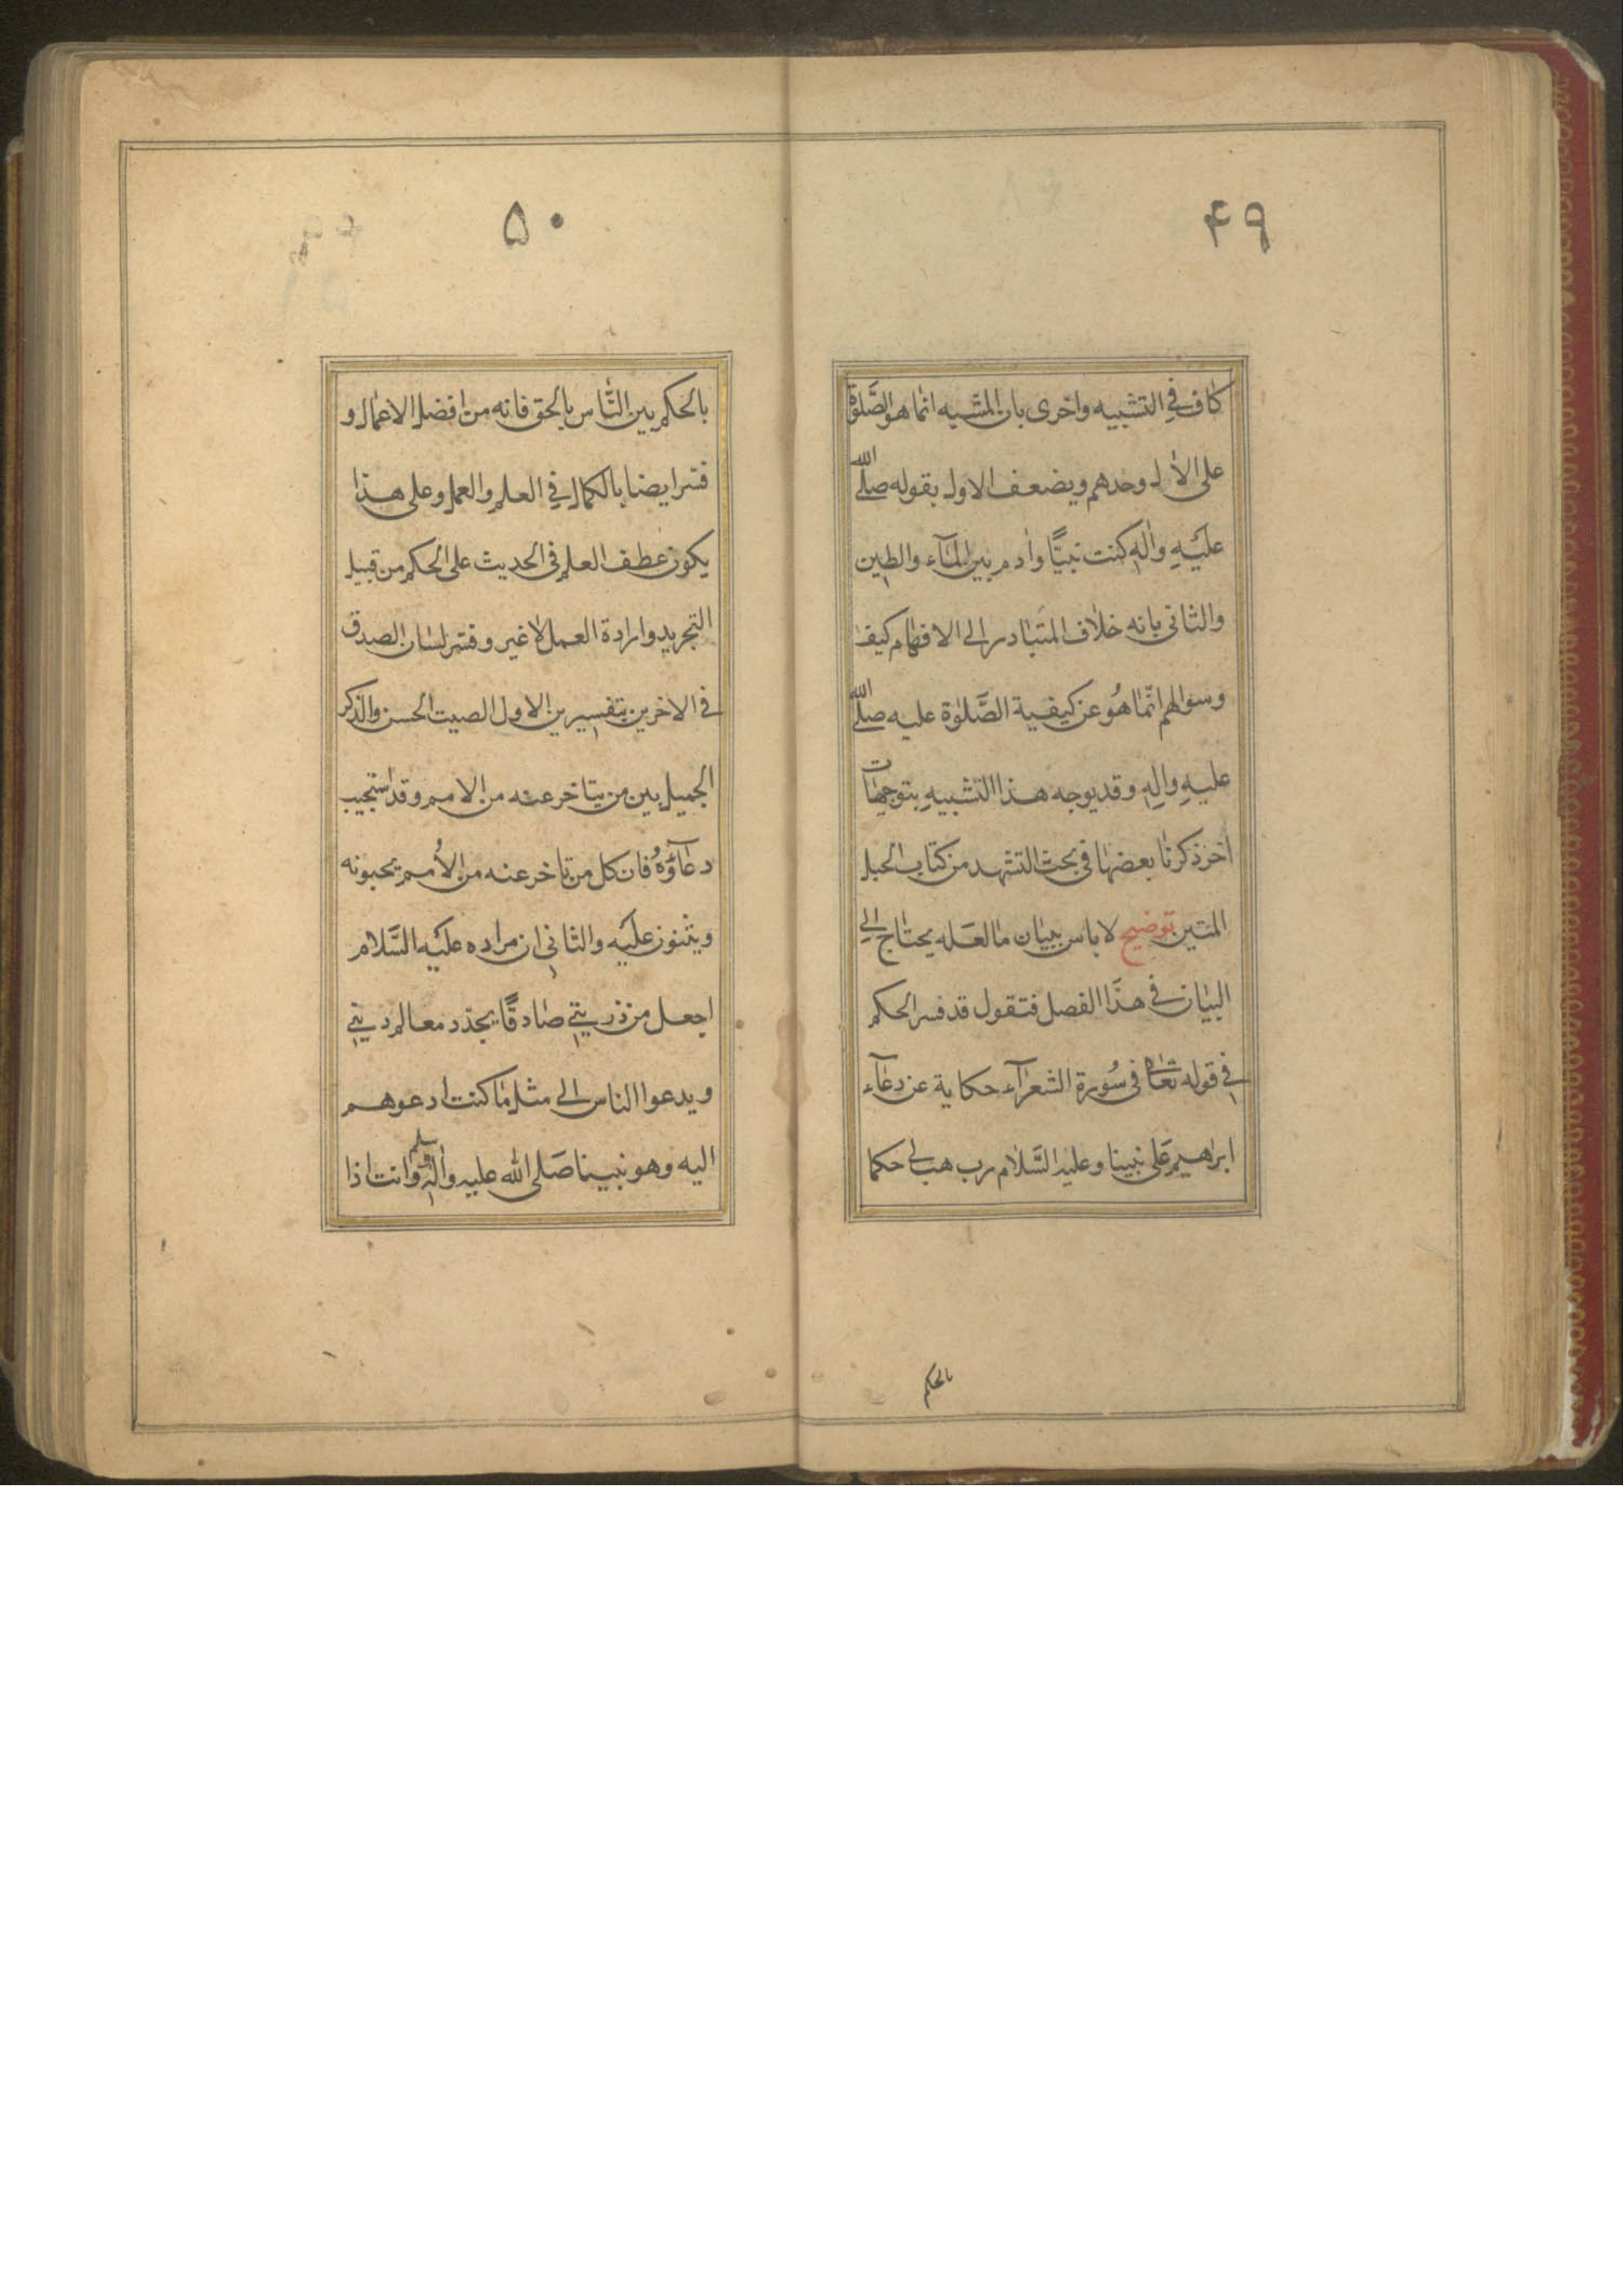 ۴۹
كاف في التشبيه واخرى بان المشبه انما هو الصَّلوة
على الال وحدهم ويضعف الاول بقوله صلى الله
عليه واله كنت نبيًّا وادم بين المآء والطين
والثانى بانه خلاف المتبادر الى الافهام كيف
وسوالهم انّما هُو عن كيفية الصَّلوة عليه صلى الله
عليهِ والهِ وقد يوجه هذا التشبيهِ بتوجيهات
اخر ذكرنا بعضها فى بحث التشهد من كتاب الحبل
المتين توضيح لا باس ببيان ما لعله يحتاج الى
البيان في هذا الفصل فنقول قد فسر الحكم
في قوله تعالى فى سُورة الشعرآء حكاية عن دعآء
ابرهيم على نبينا وعليه السَّلام رب هب لى حكما
بالحكم
۵۰
بالحكم بين النَّاس بالحق فانه من افضل الاعمال و
فسر ايضا بالكمال في العلم والعمل وعلى هذا
يكون عطف العلم فى الحديث على الحكم من قبيل
التجريد وارادة العمل لا غير وفسر لسان الصدق
فى الاخرين بتفسيرين الاول الصيت الحسن والذكر
الجميل بين من يتاخر عنه من الامم وقد استجيب
دعآؤهُ فان كل من تاخر عنه من الاُمم يحبونه
ويثنون عليه والثانى ان مراده عليه السَّلام
اجعل من ذريتي صادقًا يجدد معالم ديني
ويدعوا الناس الى مثل ما كنت ادعوهم
اليه وهو نبينا صَلى الله عليه واله وسلم وانت اذا